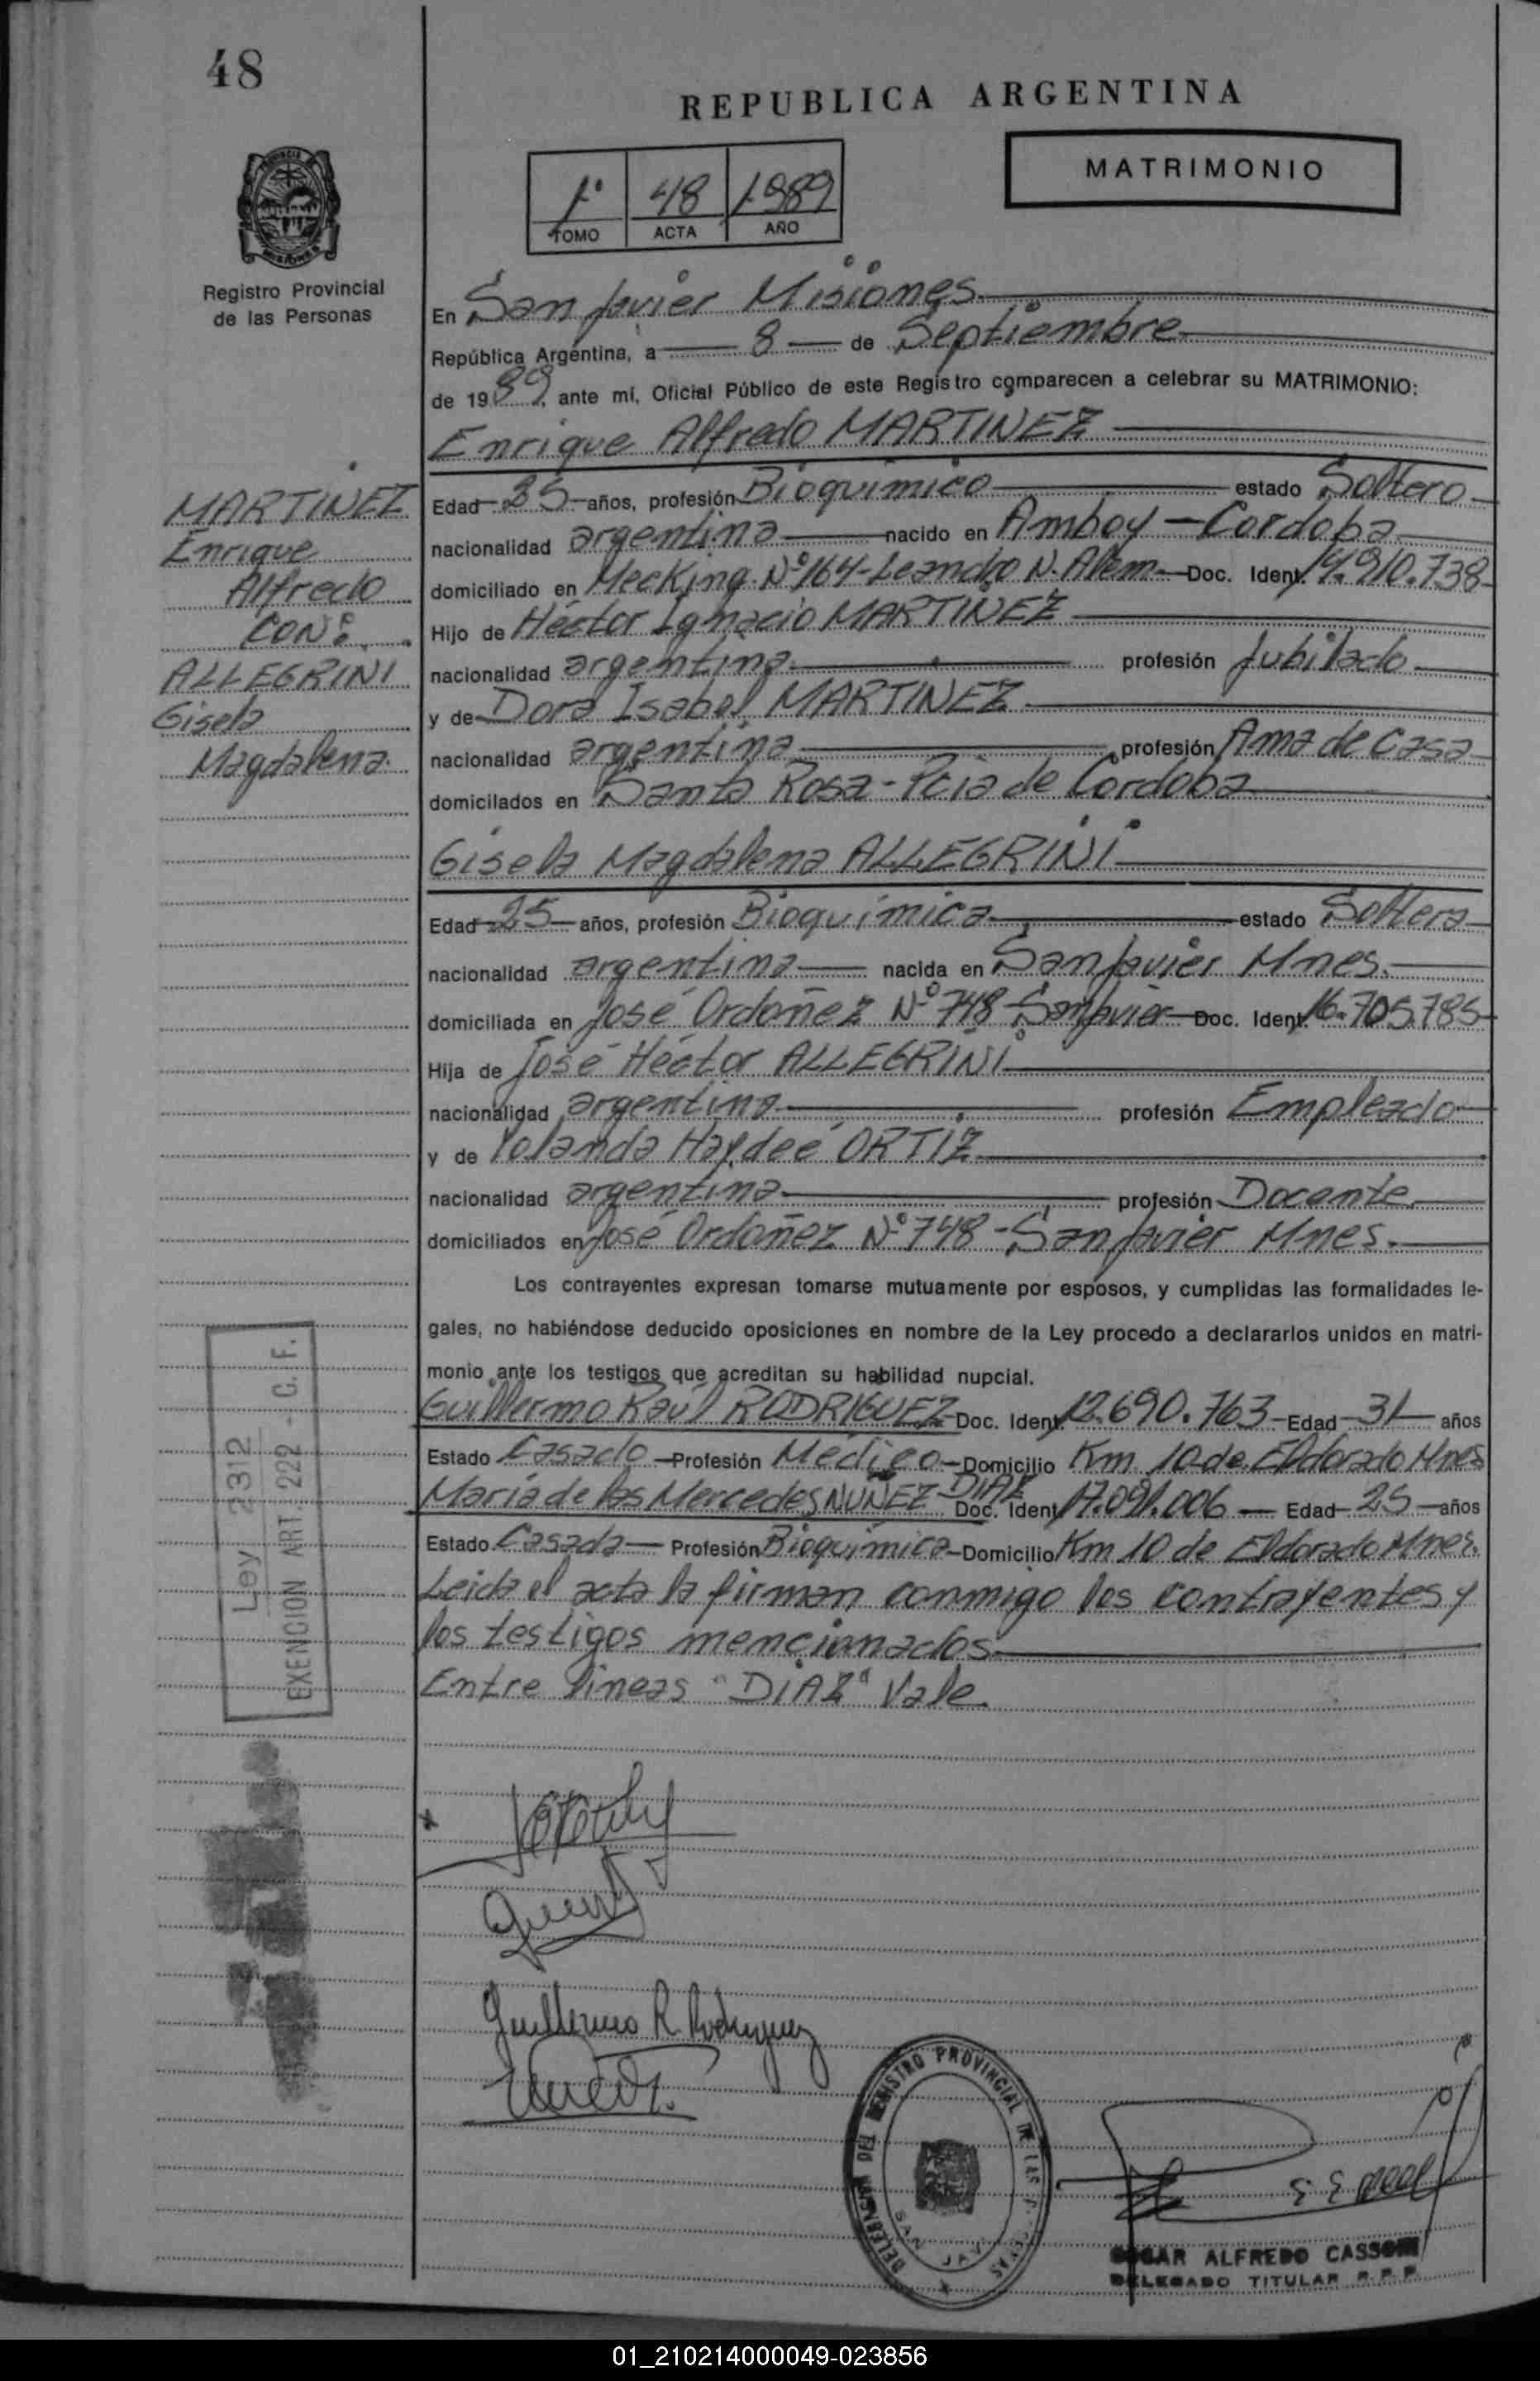 48
REPUBLICA ARGENTINA
MATRIMONIO
1º 48 1989
TOMO ACTA AÑO
Registro Provincial
de las Personas
En San Javier Misiones
República Argentina, a 8 de Septiembre
de 1989, ante mí, Oficial Público de este Registro comparecen a celebrar su MATRIMONIO:
Enrique Alfredo MARTINEZ
MARTINEZ
Enrique
Alfredo
CON:
ALLEGRINI
Gisela
Magdalena
Edad 35 años, profesión Bioquímico estado Soltero
nacionalidad argentina nacido en Amboy - Cordoba
domiciliado en MecKing Nº 164 - Leandro N. Alem Doc. Ident. 10.738
Hijo de Héctor Ignacio MARTINEZ
nacionalidad argentina profesión Jubilado
y de Dora Isabel MARTINEZ
nacionalidad argentina profesión Ama de Casa
domicilados en Santa Rosa - Pcia de Cordoba
Gisela Magdalena ALLEGRINI
Edad 25 años, profesión Bioquímica estado Soltera
nacionalidad argentina nacida en San Javier Mnes.
domiciliada en José Ordoñez Nº 748 San Javier Doc. Ident. 16.705.785
Hija de José Héctor ALLEGRINI
nacionalidad argentina profesión Empleado
y de Yolanda Haydeé ORTIZ
nacionalidad argentina profesión Docente
domiciliados en José Ordoñez Nº 748 - San Javier Mnes.
Los contrayentes expresan tomarse mutuamente por esposos, y cumplidas las formalidades le-
gales, no habiéndose deducido oposiciones en nombre de la Ley procedo a declararlos unidos en matri-
monio ante los testigos que acreditan su habilidad nupcial.
Guillermo Raúl RODRIGUEZ Doc. Ident. 12.690.763 Edad 31 años
Estado Casado Profesión Médico Domicilio Km 10 de Eldorado Mnes
DIAZ
María de las Mercedes NUÑEZ Doc. Ident. 17.091.006 Edad 25 años
Estado Casada Profesión Bioquímica Domicilio Km 10 de Eldorado Mnes.
Leida el acta la firman conmigo los contrayentes y
los testigos mencionados
Entre líneas "DIAZ" Vale
Ley 2312
EXENCION ART. 222 - C. F.
Guillermo R. Rodriguez
DELEGACION DEL REGISTRO PROVINCIAL DE LAS
SAN JAV
EDGAR ALFREDO CASSONI
DELEGADO TITULAR R. P. P.
01_210214000049-023856